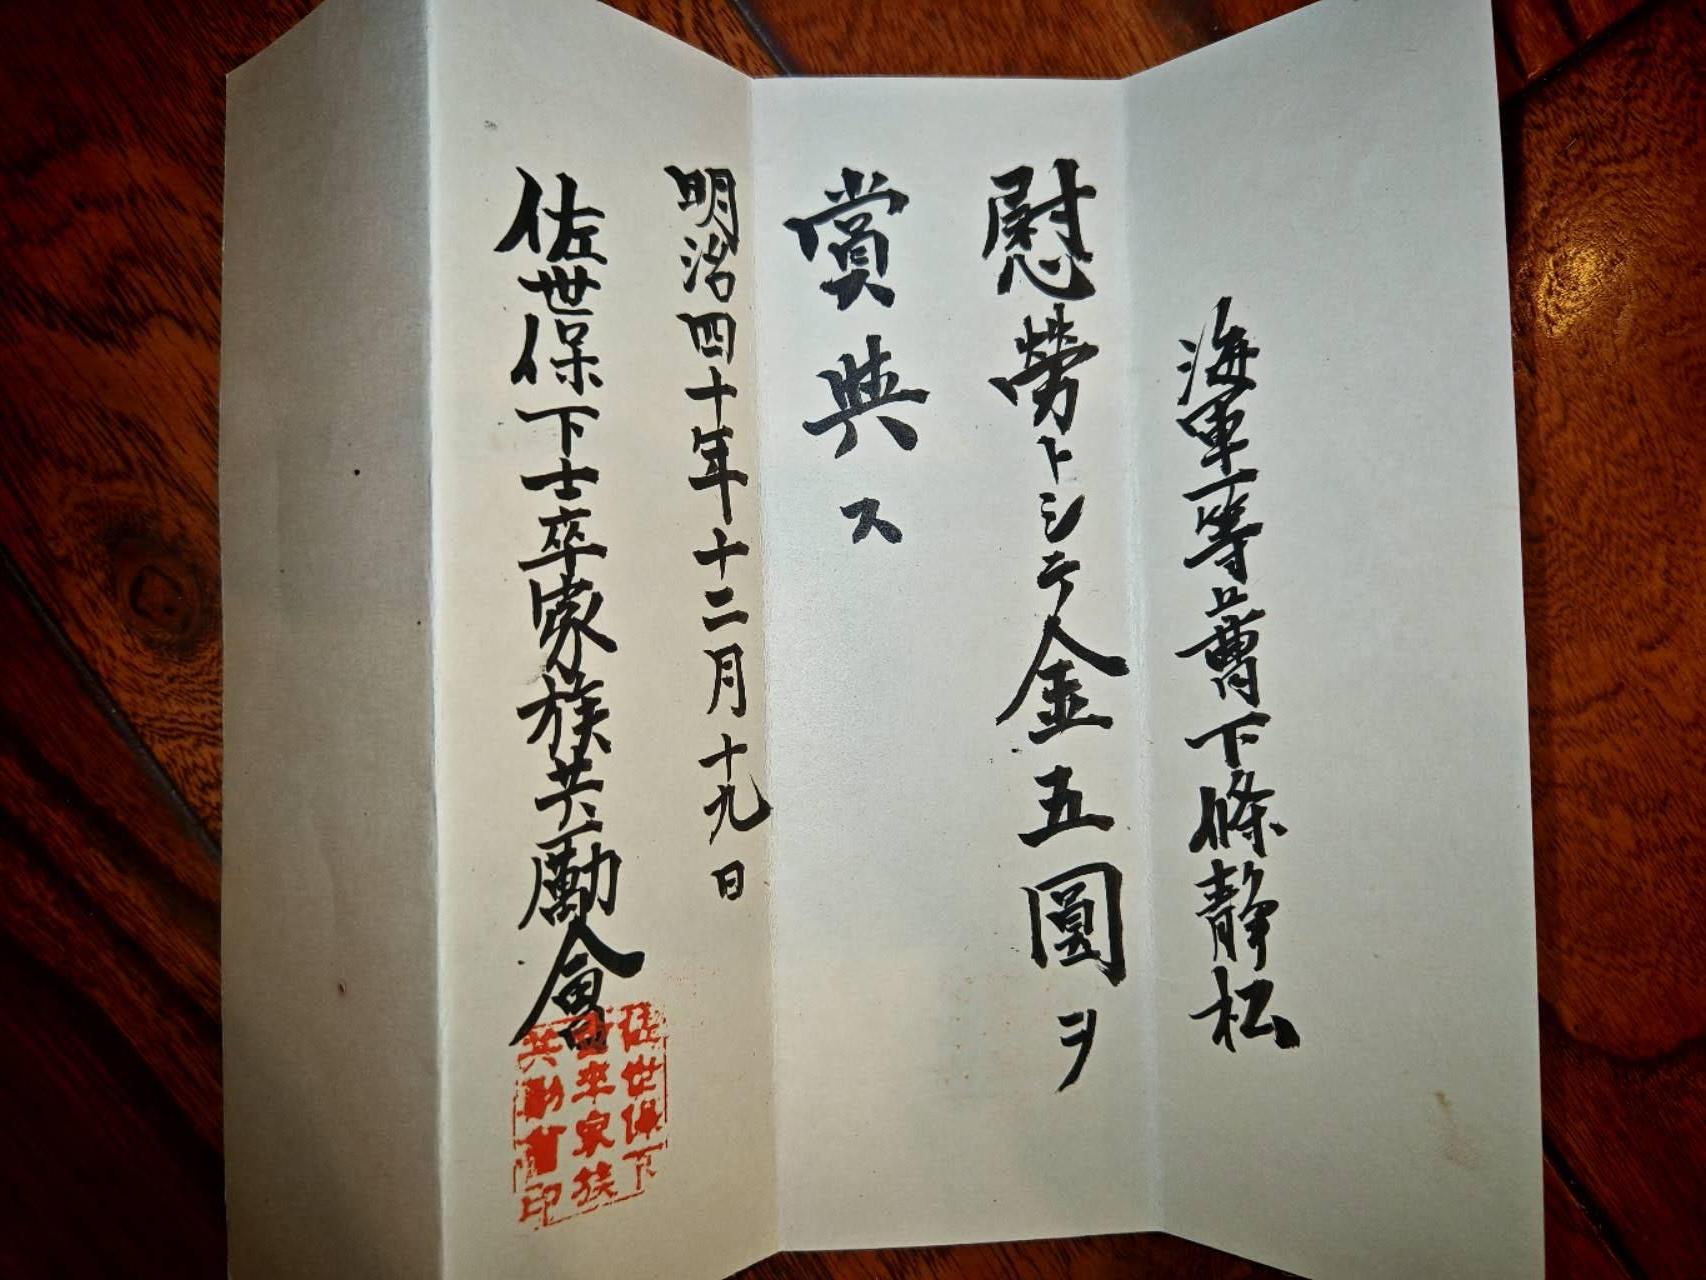 海軍一等兵曹下條静松
慰勞トシテ金五圓ヲ
賞與ス
明治四十年十二月十九日
佐世保下士卒家族共勵會
佐世保下
士卒家族
共勵會印